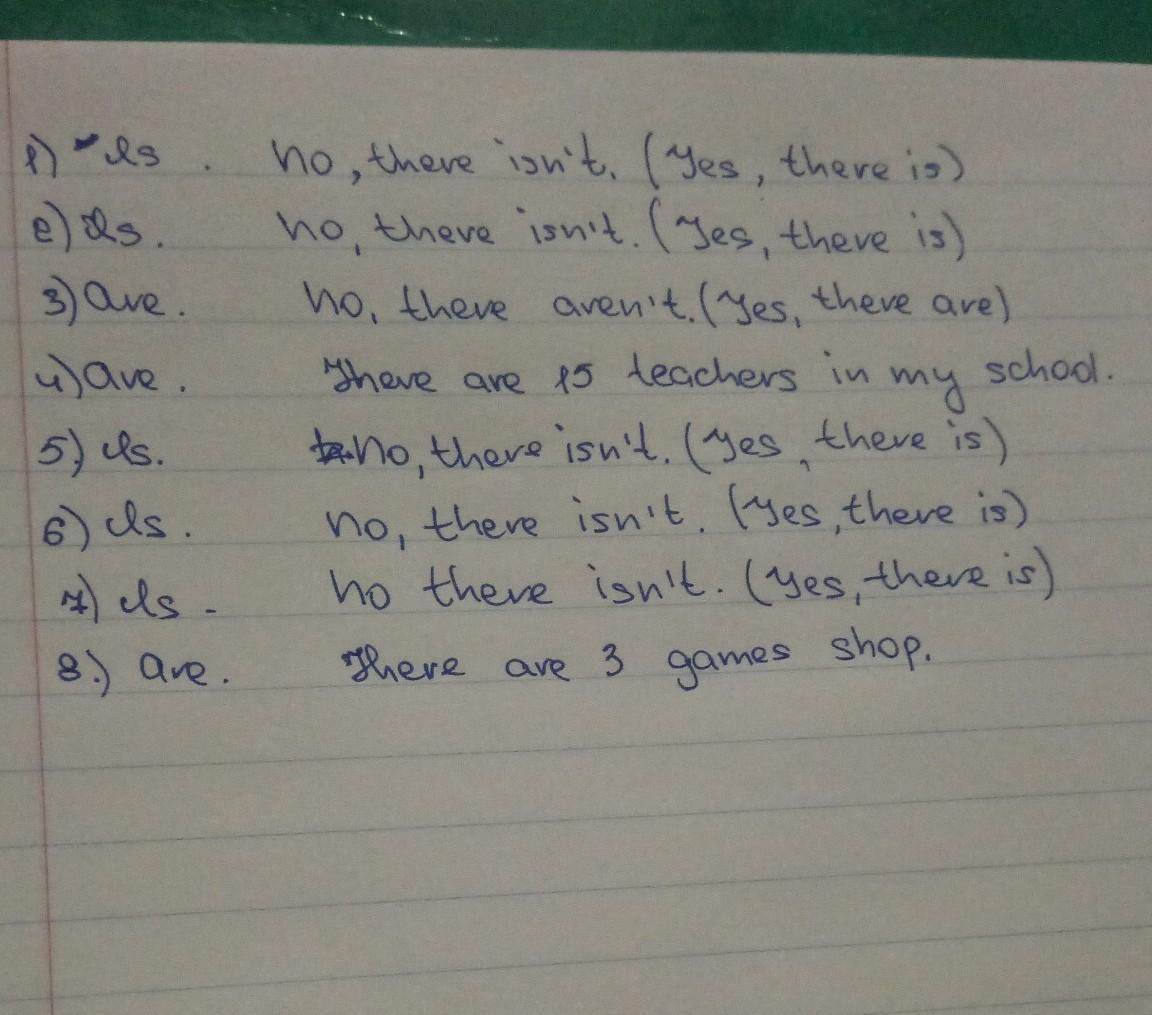 1) Is. No, there isn't. (Yes, there is)
2) Is. No, there isn't. (Yes, there is)
3) Are. No, there aren't. (Yes, there are)
4) Are. There are 15 teachers in my school.
5) Is. No, there isn't. (Yes, there is)
6) Is. No, there isn't. (Yes, there is)
7) Is. No there isn't. (Yes, there is)
8.) Are. There are 3 games shop.